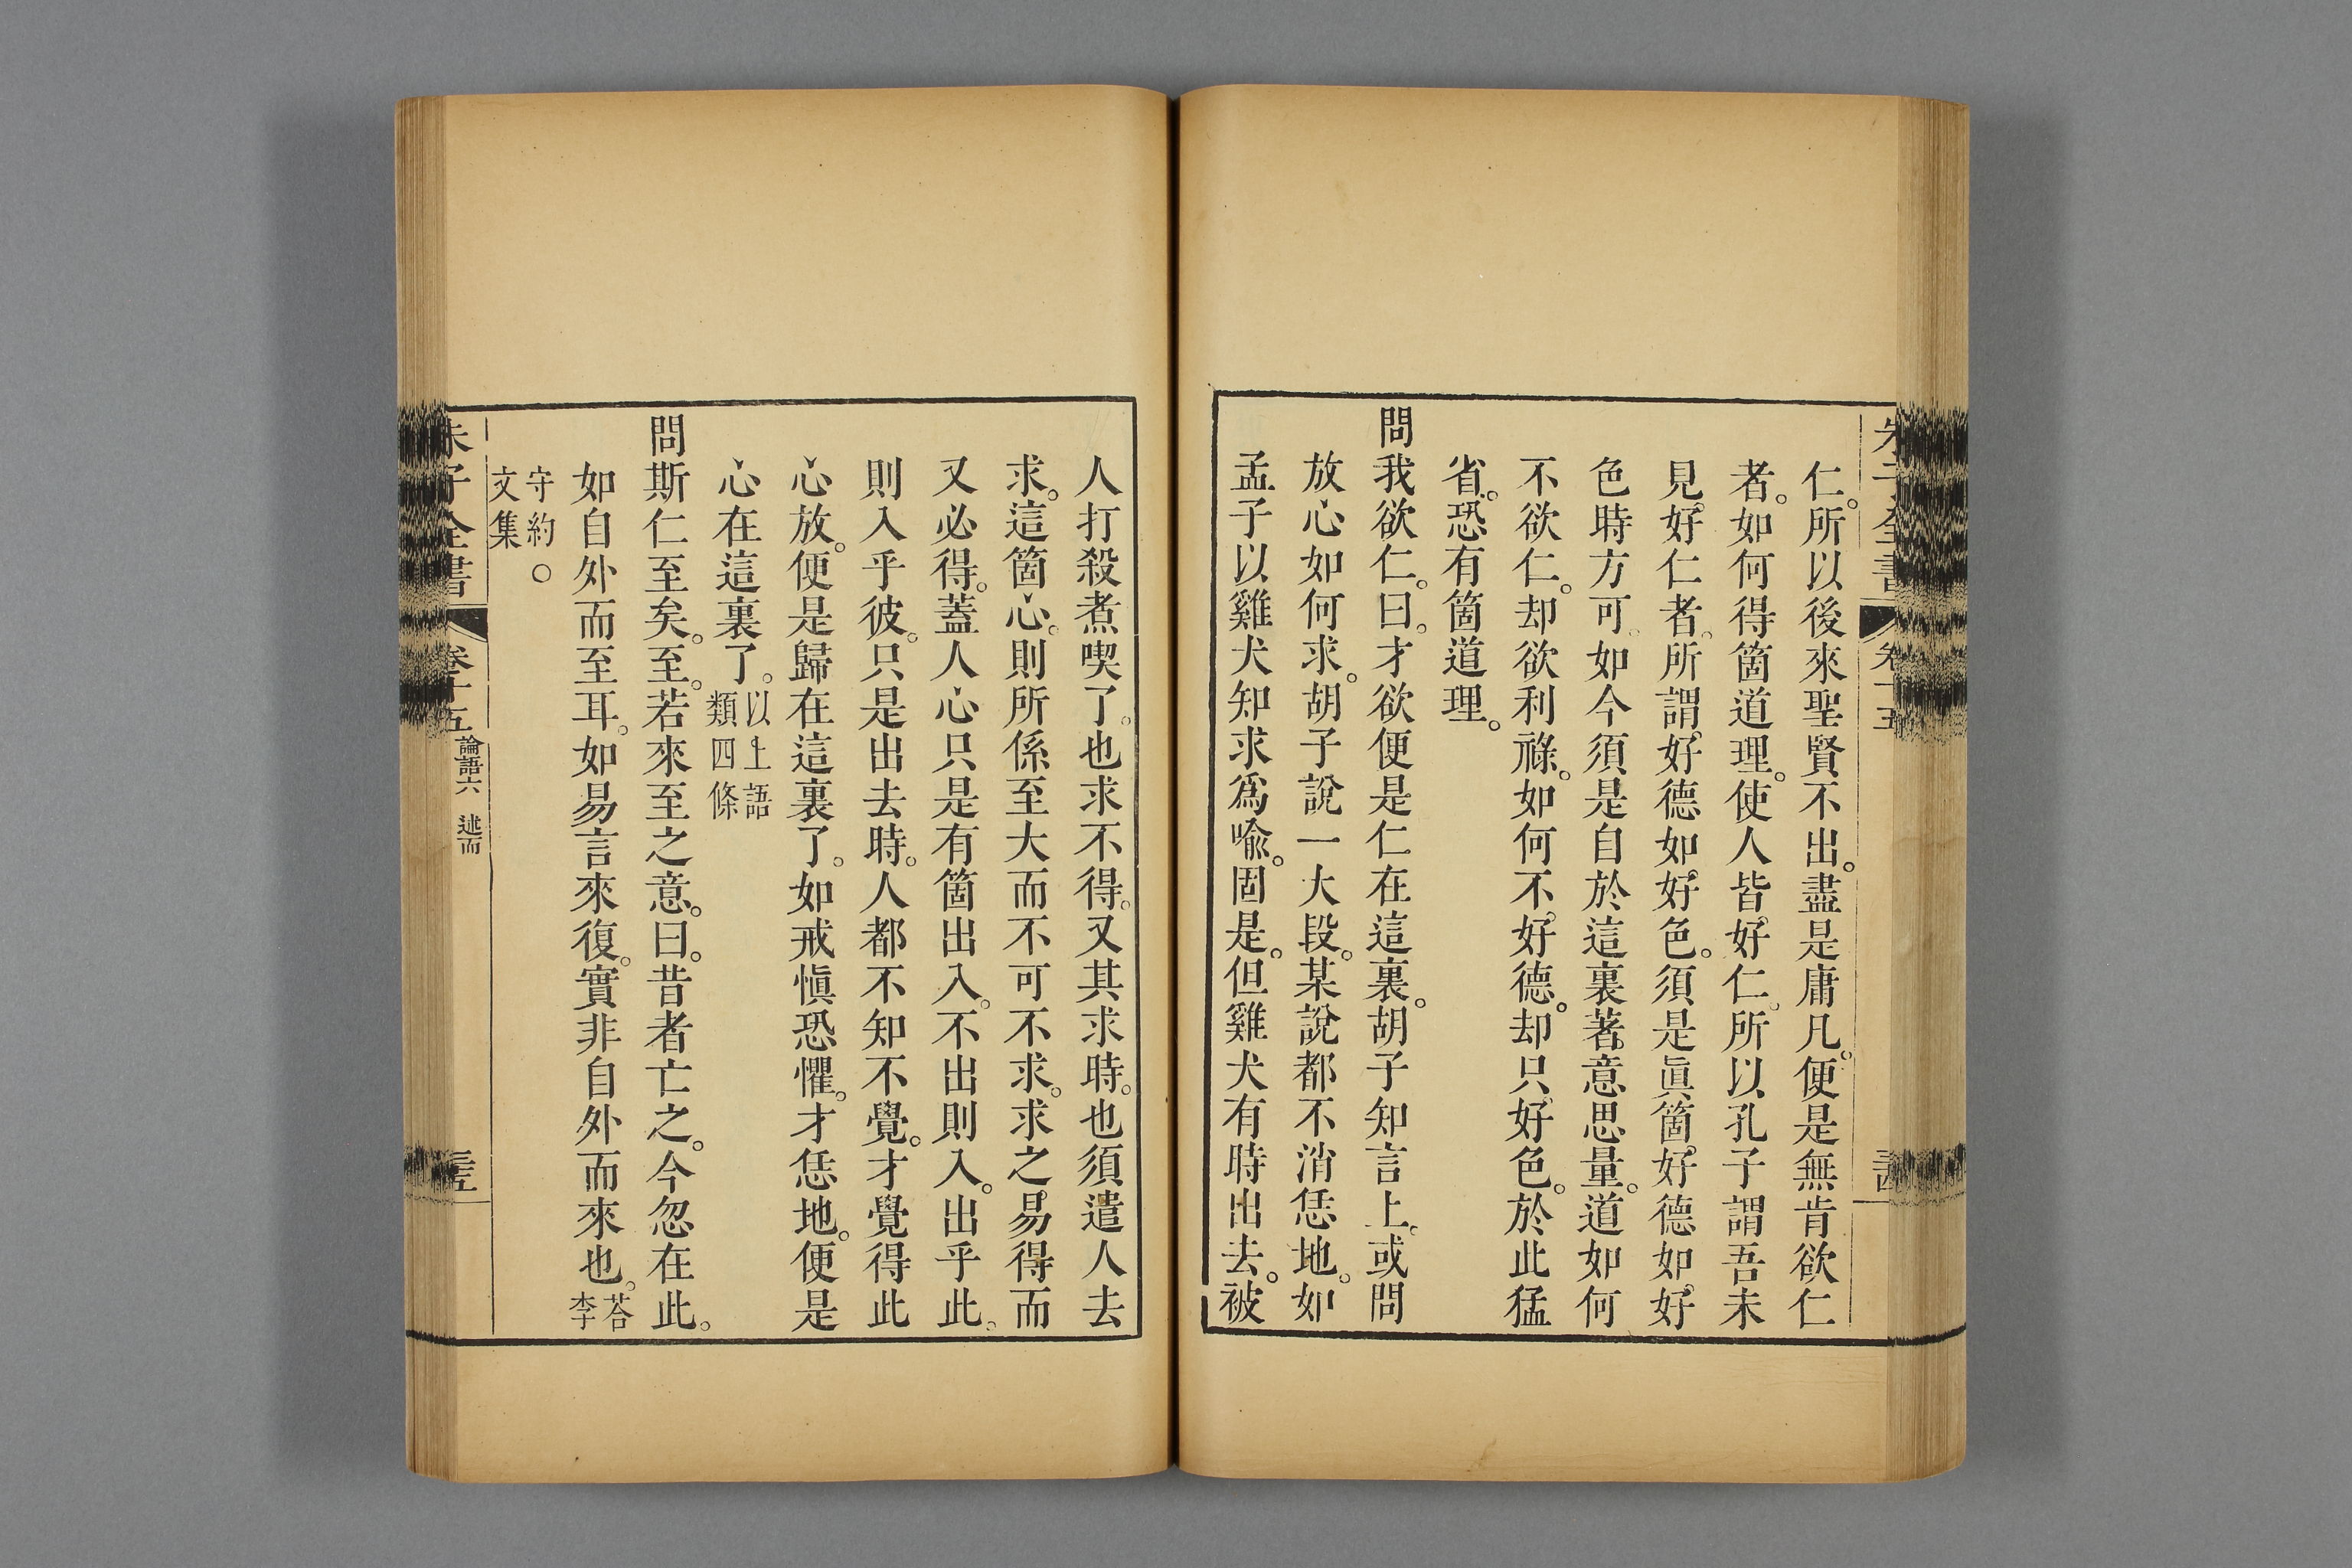 仁。所以後來聖賢不出。盡是庸凡。便是無肯欲仁
者。如何得箇道理。使人皆好仁。所以孔子謂吾未
見好仁者。所謂好德如好色。須是眞箇好德如好
色時方可。如今須是自於這裏著意思量。道如何
不欲仁。却欲利祿。如何不好德。却只好色。於此猛
省。恐有箇道理。
問我欲仁。曰。才欲便是仁在這裏。胡子知言上。或問
放心如何求。胡子說一大段。某說都不消恁地。如
孟子以雞犬知求爲喩。固是。但雞犬有時出去。被
人打殺煮喫了。也求不得。又其求時。也須遣人去
求。這箇心。則所係至大而不可不求。求之易得而
又必得。蓋人心只是有箇出入。不出則入。出乎此。
則入乎彼。只是出去時。人都不知不覺。才覺得此
心放。便是歸在這裏了。如戒愼恐懼。才恁地。便是
心在這裏了。以上語類四條
問斯仁至矣。至。若來至之意。曰。昔者亡之。今忽在此。
如自外而至耳。如易言來復。實非自外而來也。荅李
守約○文集
朱子全書 卷十五 論語六 述而 三五